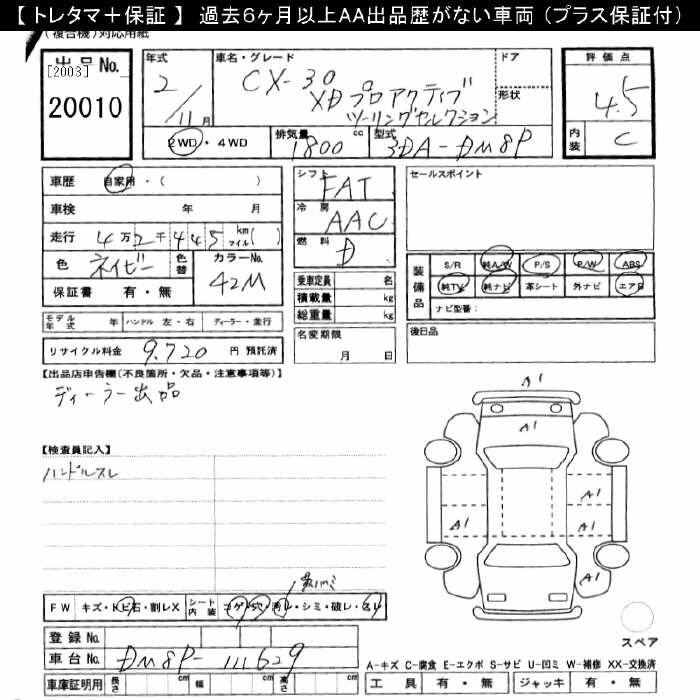 【 トレタマ＋保証 】 過去6ヶ月以上AA出品歴がない車両（プラス保証付）
(複合機)対応用紙
出品No.
[2003]
20010
年式
2/11月
車名・グレード
CX-30
XDプロアクティブ
ツーリングセレクション
ドア
形状
評価点
4.5
内装
C
2WD・4WD
排気量
1800 cc
型式
3DA-DM8P
車歴 自家用・( )
車検 年 月
走行 4万2千445 km マイル( )
色 ネイビー 色替
カラーNo.
42M
保証書 有・無
シフト FAT
冷房 AAC
燃料 D
乗車定員 名
積載量 kg
総重量 kg
名変期限
月 日
セールスポイント
装備品
S/R 純A/W P/S P/W ABS
純TV 純ナビ 革シート 外ナビ エアB
ナビ型番：
後日品
モデル年式 年 ハンドル 左・右 ディーラー・並行
リサイクル料金 9,720 円 預託済
【出品店申告欄(不良箇所・欠品・注意事項等)】
ディーラー出品
【検査員記入】
ハンドルスレ
A1
A1
A1
A1
A1
A1
A1
FW キズ・トビ石・割レX シート内装 コゲ・穴・汚レ・シミ・破レ・スレ
登録No.
車台No. DM8P-111629
車庫証明用 長さ cm 幅 cm 高さ cm
スペア
A-キズ C-腐食 E-エクボ S-サビ U-凹ミ W-補修 XX-交換済
工具 有・無 ジャッキ 有・無